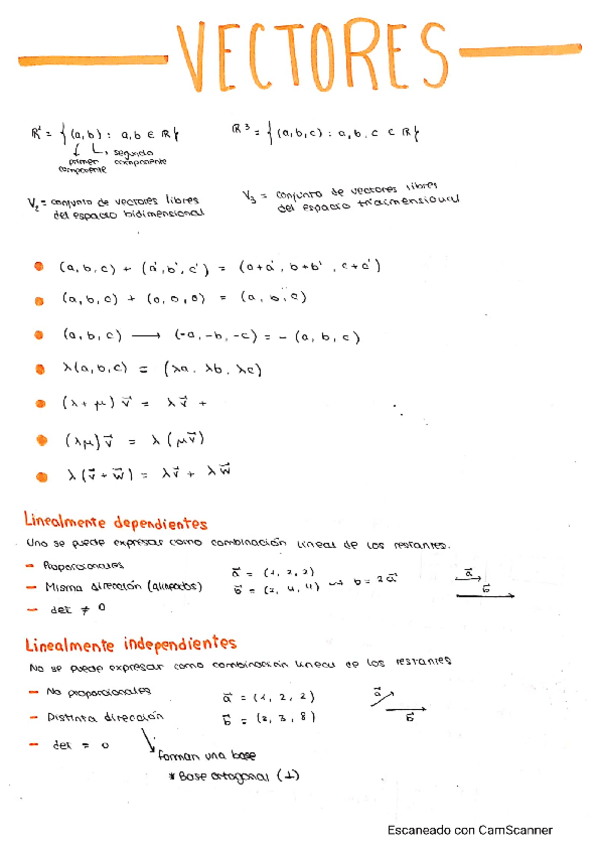 VECTORES
ℝ² = { (a,b) : a,b ∈ ℝ }
ℝ³ = { (a,b,c) : a,b,c ∈ ℝ }
primer componente
segunda componente
V₂ = conjunto de vectores libres
del espacio bidimensional
V₃ = conjunto de vectores libres
del espacio tridimensional
(a,b,c) + (a',b',c') = (a+a', b+b', c+c')
(a,b,c) + (0,0,0) = (a,b,c)
(a,b,c) → (-a,-b,-c) = -(a,b,c)
λ(a,b,c) = (λa, λb, λc)
(λ+μ) v⃗ = λv⃗ +
(λμ)v⃗ = λ(μv⃗)
λ(v⃗ + w⃗) = λv⃗ + λw⃗
Linealmente dependientes
Uno se puede expresar como combinación lineal de los restantes.
- Proporcionales
a⃗ = (1, 2, 2)
- Misma dirección (alineados)
b⃗ = (2, 4, 4) → b = 2a⃗
a⃗
b⃗
- det ≠ 0
Linealmente independientes
No se puede expresar como combinación lineal de los restantes
- No proporcionales
a⃗ = (1, 2, 2)
a⃗
- Distinta dirección
b⃗ = (2, 3, 8)
b⃗
- det = 0
forman una base
* Base ortogonal (⊥)
Escaneado con CamScanner